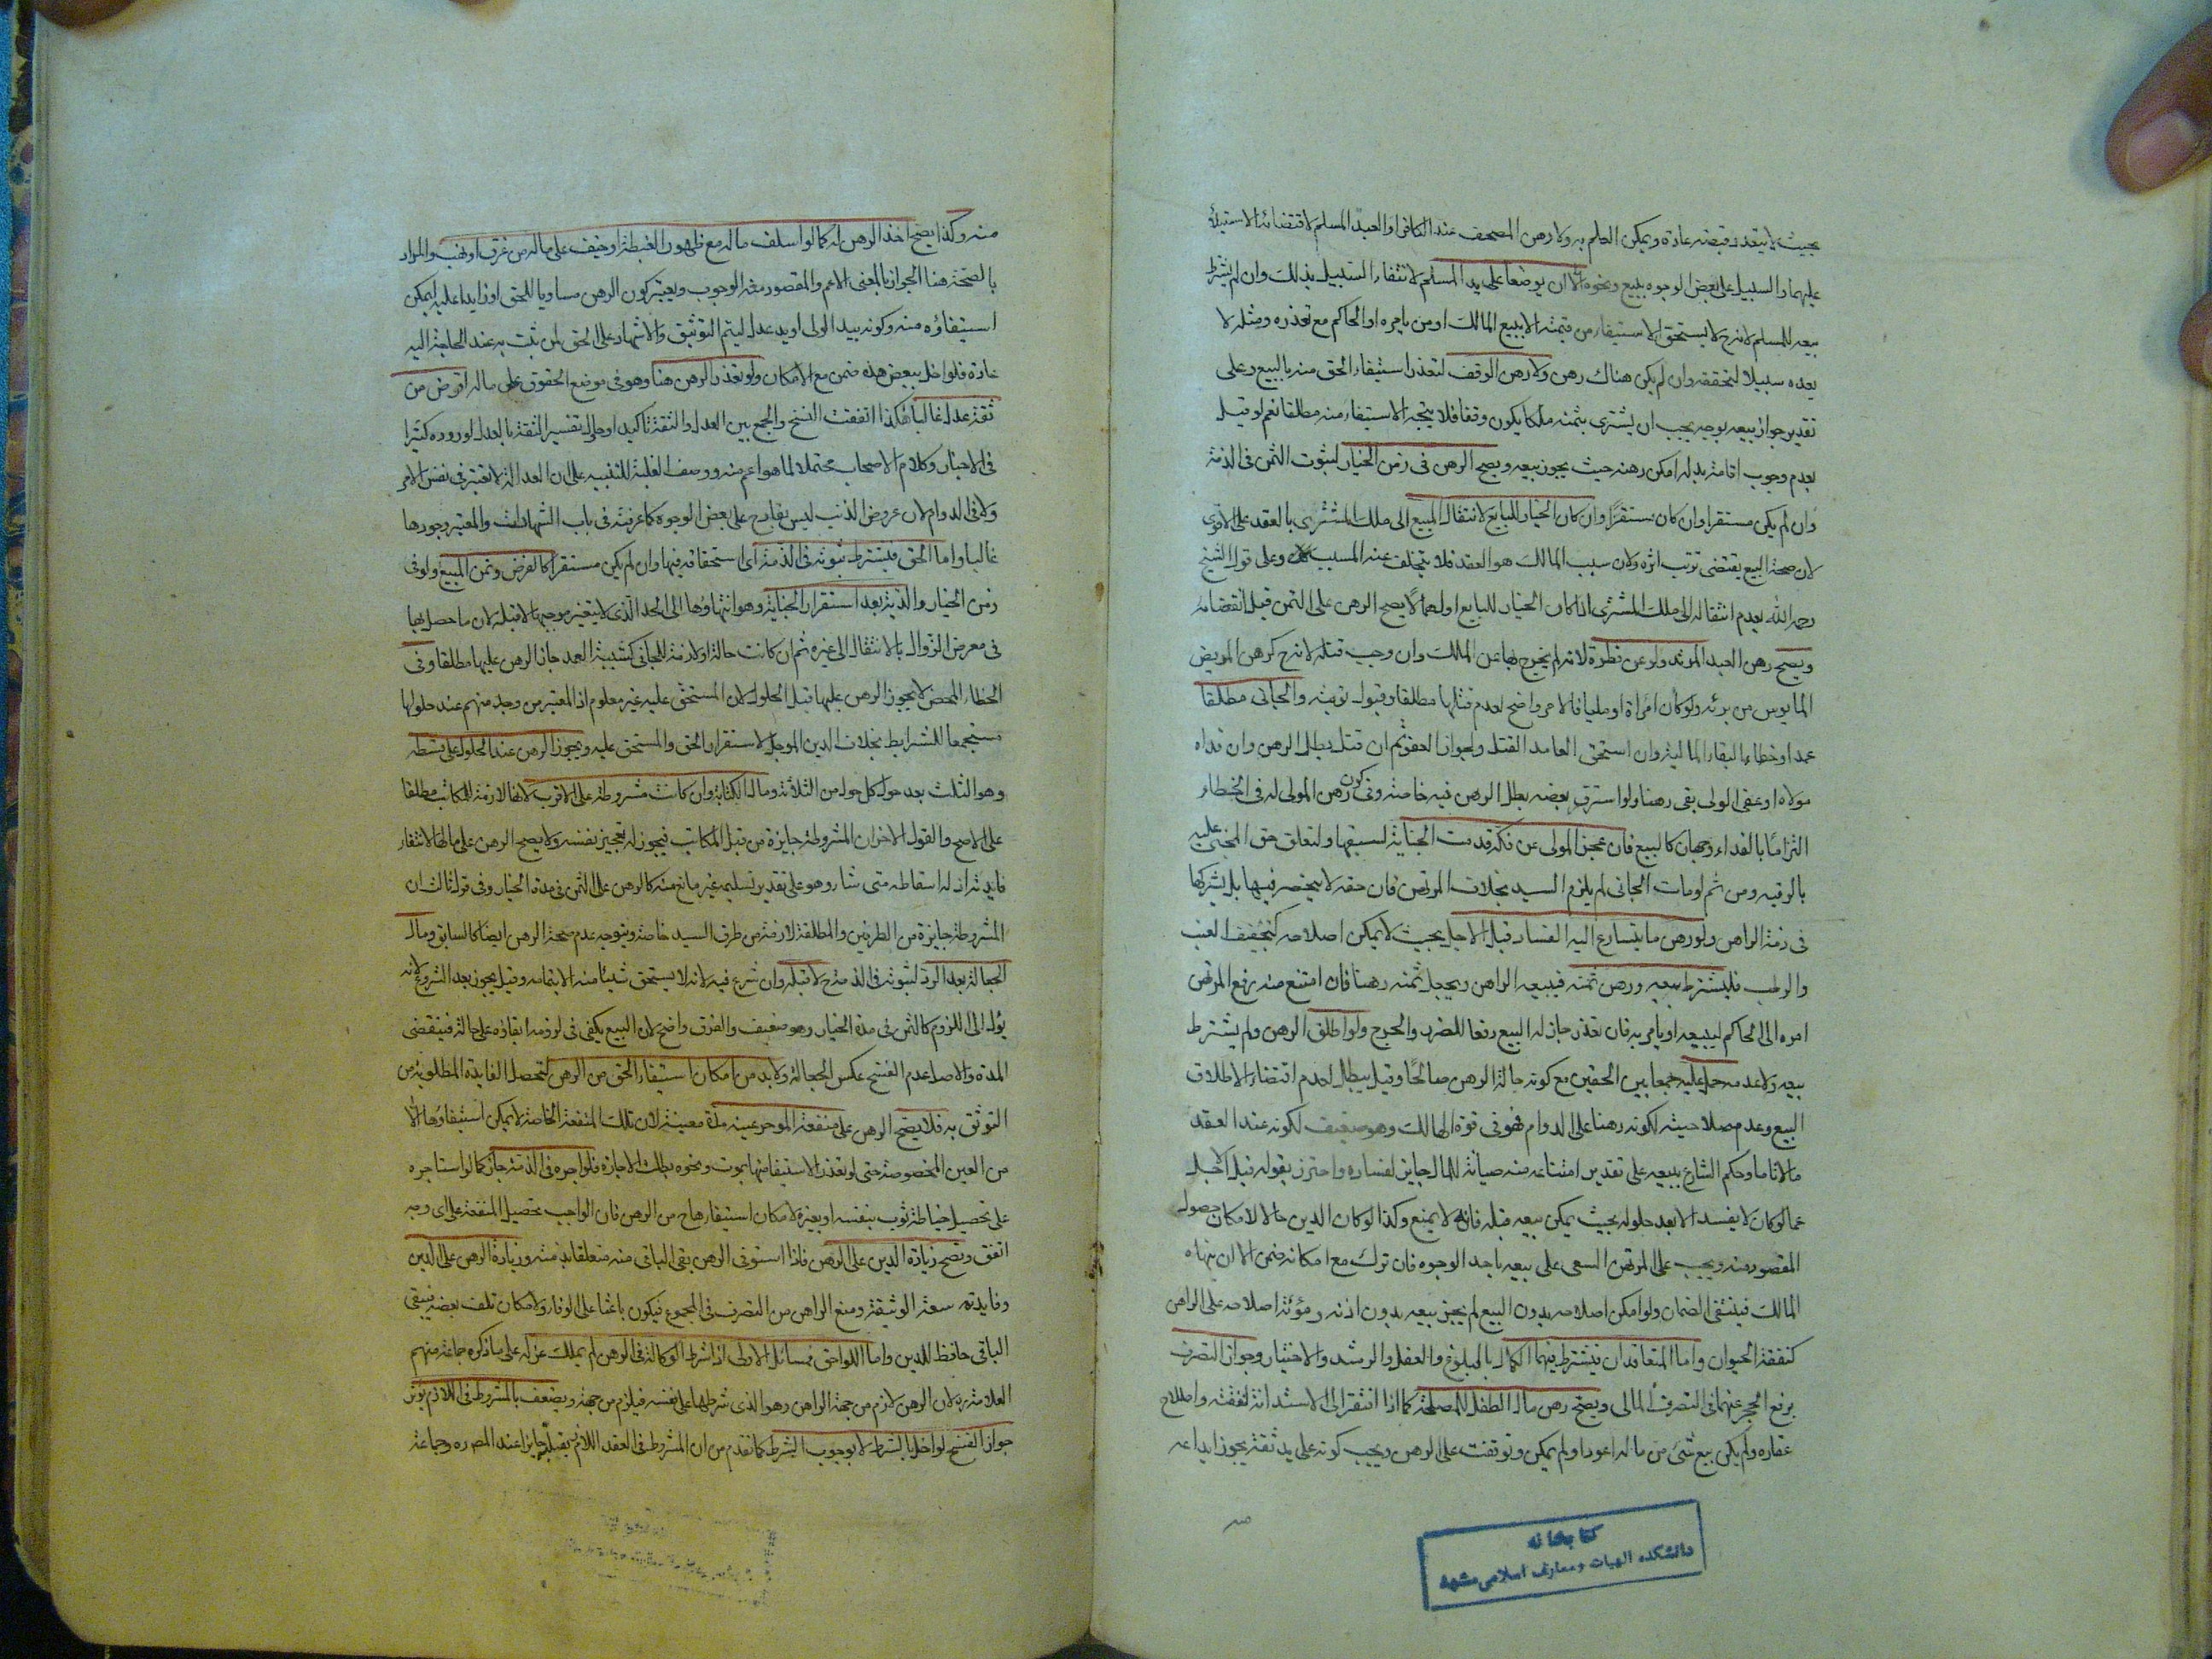 بحيث لا يتعذر قبضه عادة ويمكن العلم به ولا رهن المصحف عند الكافر او العبد المسلم لاقتضائه الاستيلاء
عليهما والسبيل على بعض الوجوه ببيع ونحوه الا ان يوضعا على يد المسلم لانتفاء السبيل بذلك وان لم يشترط
بيعه للمسلم لانه ح لا يستحق الاستيفاء من قيمته الا ببيع المالك او من يامره او الحاكم مع تعذره ومثله لا
يعده سبيلا لتحققه وان لم يكن هناك رهن ولا رهن الوقف لتعذر استيفاء الحق منه بالبيع وعلى
تقدير جواز بيعه بوجه يجب ان يشترى بثمنه ملكا يكون وقفا فلا يتجه الاستيفاء منه مطلقا نعم لو قيل
بعدم وجوب اقامة بدله امكن رهنه حيث يجوز بيعه ويصح الرهن فى زمن الخيار لثبوت الثمن فى الذمة
وان لم يكن مستقرا وان كان مستقرًّا وان كان الخيار للبايع لانتقال المبيع الى ملك المشترى بالعقد على الاقوى
لان صحة البيع يقتضى ترتب اثره ولان سبب المالك هو العقد فلا يتخلف عنه المسبب وعلى قول الشيخ
رحمه الله بعدم انتقاله الى ملك المشترى اذا كان الخيار للبايع او لهما لا يصح الرهن على الثمن قبل انقضائه
ويصح رهن العبد المرتد ولو عن فطرة لانه لم يخرج بها عن المالك وان وجب قتله لانه ح كرهن المريض
المايوس من برئه ولو كان امراة او مليا فالامر واضح لعدم قتلها مطلقا وقبول توبته والجانى مطلقا
عمدا وخطاء لبقاء المالية وان استحق العامد القتل ولجواز العفو ثم ان قتل بطل الرهن وان فداه
مولاه او عفى الولى بقى رهنا ولو استرق بعضه بطل الرهن فيه خاصة وفى كون رهن المولى له فى الخطاء
التزامًا بالفداء وجهان كالبيع فان عجز المولى عن فكه قدمت الجناية لسبقها ولتعلق حق المجنى عليه
بالرقبه ومن ثم لو مات الجانى لم يلزم السيد بخلاف المرتهن فان حقه لا ينحصر فيها بل يشركها
فى ذمة الراهن ولو رهن ما يتسارع اليه الفساد قبل الاجل بحيث لا يمكن اصلاحه كتجفيف العنب
والرطب فليشترط بيعه ورهن ثمنه فيبيعه الراهن ويجعل ثمنه رهنا فان امتنع منه رفع المرتهن
امره الى الحاكم ليبيعه او يامر به فان تعذر جاز له البيع دفعا للضرر والحرج ولو اطلق الرهن ولم يشترط
بيعه ولا عدمه حمل عليه جمعا بين الحقين مع كونه حالة الرهن صالحًا وقيل يبطل لعدم اقتضاء الاطلاق
البيع وعدم صلاحيته لكونه رهنا على الدوام فهو فى قوة الهالك وهو ضعيف لكونه عند العقد
مالا تاما وحكم الشارع ببيعه على تقدير امتناعه منه صيانة للمال جابر لفساده واحترز بقوله قبل الاجل
عما لو كان لا يفسد الا بعد حلوله بحيث يمكن بيعه قبله فانه لا يمنع وكذا لو كان الدين حالا لامكان حصول
المقصود منه ويجب على المرتهن السعى على بيعه باحد الوجوه فان ترك مع امكانه ضمن الا ان ينهاه
المالك فينتفى الضمان ولو امكن اصلاحه بدون البيع لم يجز بيعه بدون اذنه ومؤنة اصلاحه على الراهن
كنفقة الحيوان واما المتعاقدان فيشترط فيهما الكمال بالبلوغ والعقل والرشد والاختيار وجواز التصرف
برفع الحجر عنهما فى التصرف المالى ويصح رهن مال الطفل للمصلحة كما اذا افتقر الى الاستدانة لنفقته واصلاح
عقاره ولم يكن بيع شئ من ماله اعود او لم يمكن وتوقفت على الرهن ويجب كونه على يد ثقة يجوز ايداعه
كتابخانه
دانشكده الهيات ومعارف اسلامى مشهد
منه وكذا يصح اخذ الرهن له كما لو اسلف ماله مع ظهور الغبطة او خيف على ماله من غرق او نهب والمراد
بالصحة هنا الجواز بالمعنى الاعم والمقصود منه الوجوب ويعتبر كون الرهن مساويا للحق او زايدا عليه ليمكن
استيفاؤه منه وكونه بيد الولى او يد عدل ليتم التوثيق والاشهاد على الحق لمن يثبت به عند الحاجة اليه
عادة فلو اخل ببعض هذه ضمن مع الامكان ولو تعذر الرهن هنا وهو فى موضع الحقوق على ماله اقرض من
ثقة عدل غالبا هكذا اتفقت النسخ والجمع بين العدل والثقة تاكيد او حاول تفسير الثقة بالعدل لوروده كثيرا
فى الاخبار وكلام الاصحاب محتملا لما هو اعم منه ووصف الغلبة للتنبيه على ان العدالة لا تعتبر فى نفس الامر
ولا فى الدوام لان عروض الذنب ليس بقادح على بعض الوجوه كما عرفته فى باب الشهادات والمعتبر وجودها
غالبا واما الحق فيشترط ثبوته فى الذمة اى استحقاقه فيها وان لم يكن مستقرا كالقرض وثمن المبيع ولو فى
زمن الخيار والدية بعد استقرار الجناية وهو انتهاؤها الى الحد الذى لا يتغير موجبها لا قبله لان ما حصل بها
فى معرض الزوال بالانتقال الى غيره ثم ان كانت حالة او لازمة للجانى كشبيه العمد جاز الرهن عليها مطلقا وفى
الخطاء المحض لا يجوز الرهن عليها قبل الحلول لان المستحق عليه غير معلوم اذ المعتبر من وجد منهم عند حلولها
مستجمعا للشرايط بخلاف الدين الموجل لاستقرار الحق والمستحق عليه ويجوز الرهن عند الحلول على قسطه
وهو الثلث بعد حول كل حول من الثلاثة ومال الكتابة وان كانت مشروطة على الاقرب لانها لازمة للمكاتب مطلقا
على الاصح والقول الاخر ان المشروطة جايزة من قبل المكاتب فيجوز له تعجيز نفسه ولا يصح الرهن على مالها لانتفاء
فايدته اذ له اسقاطه متى شاء وهو على تقدير تسليمه غير مانع منه كالرهن على الثمن فى مدة الخيار وفى قول ثالث ان
المشروطة جايزة من الطرفين والمطلقة لازمة من طرف السيد خاصة ويتوجه عدم صحة الرهن ايضا كالسابق ومال
الجعالة بعد الرد لثبوته فى الذمة ح لا قبله وان شرع فيه لانه لا يستحق شيئا منه الا بتمامه وقيل يجوز بعد الشروع لانه
يؤل الى اللزوم كالثمن فى مدة الخيار وهو ضعيف والفرق واضح لان البيع يكفى فى لزومه ابقاؤه على حاله فينقضى
المدة والاصل عدم الفسخ عكس الجعالة ولا بد من امكان استيفاء الحق من الرهن لتحصل الفايدة المطلوبة من
التوثق به فلا يصح الرهن على منفعة الموجر عينه مدة معينة لان تلك المنفعة الخاصة لا يمكن استيفاؤها الا
من العين المخصوصة حتى لو تعذر الاستيفاء منها بموت ونحوه بطلت الاجارة فلو اجره فى الذمة جاز كما لو استاجره
على تحصيل خياطة ثوب بنفسه او بغيره لامكان استيفاؤها ح من الرهن فان الواجب تحصيل المنفعة على اى وجه
اتفق وتصح زيادة الدين على الرهن فاذا استوفى الرهن بقى الباقى منه متعلقا بذمته وزيادة الرهن على الدين
وفايدته سعة الوثيقة ومنع الراهن من التصرف فى المجموع فيكون باعثا على الوفاء ولامكان تلف بعضه فيبقى
الباقى حافظ للدين واما اللواحق فمسائل الاولى اذا شرط الوكالة فى الرهن لم يملك عزله على ما ذكره جماعة منهم
العلامة ره لان الرهن لازم من جهة الراهن وهو الذى شرطها على نفسه فيلزم من جهته ويضعف بالمشروط فى اللازم يؤثر
جواز الفسخ لو اخل بالشرط لا بوجوب الشرط كما تقدم من ان المشروط فى العقد اللازم يقلبه جايزا عند المص ره وجماعة